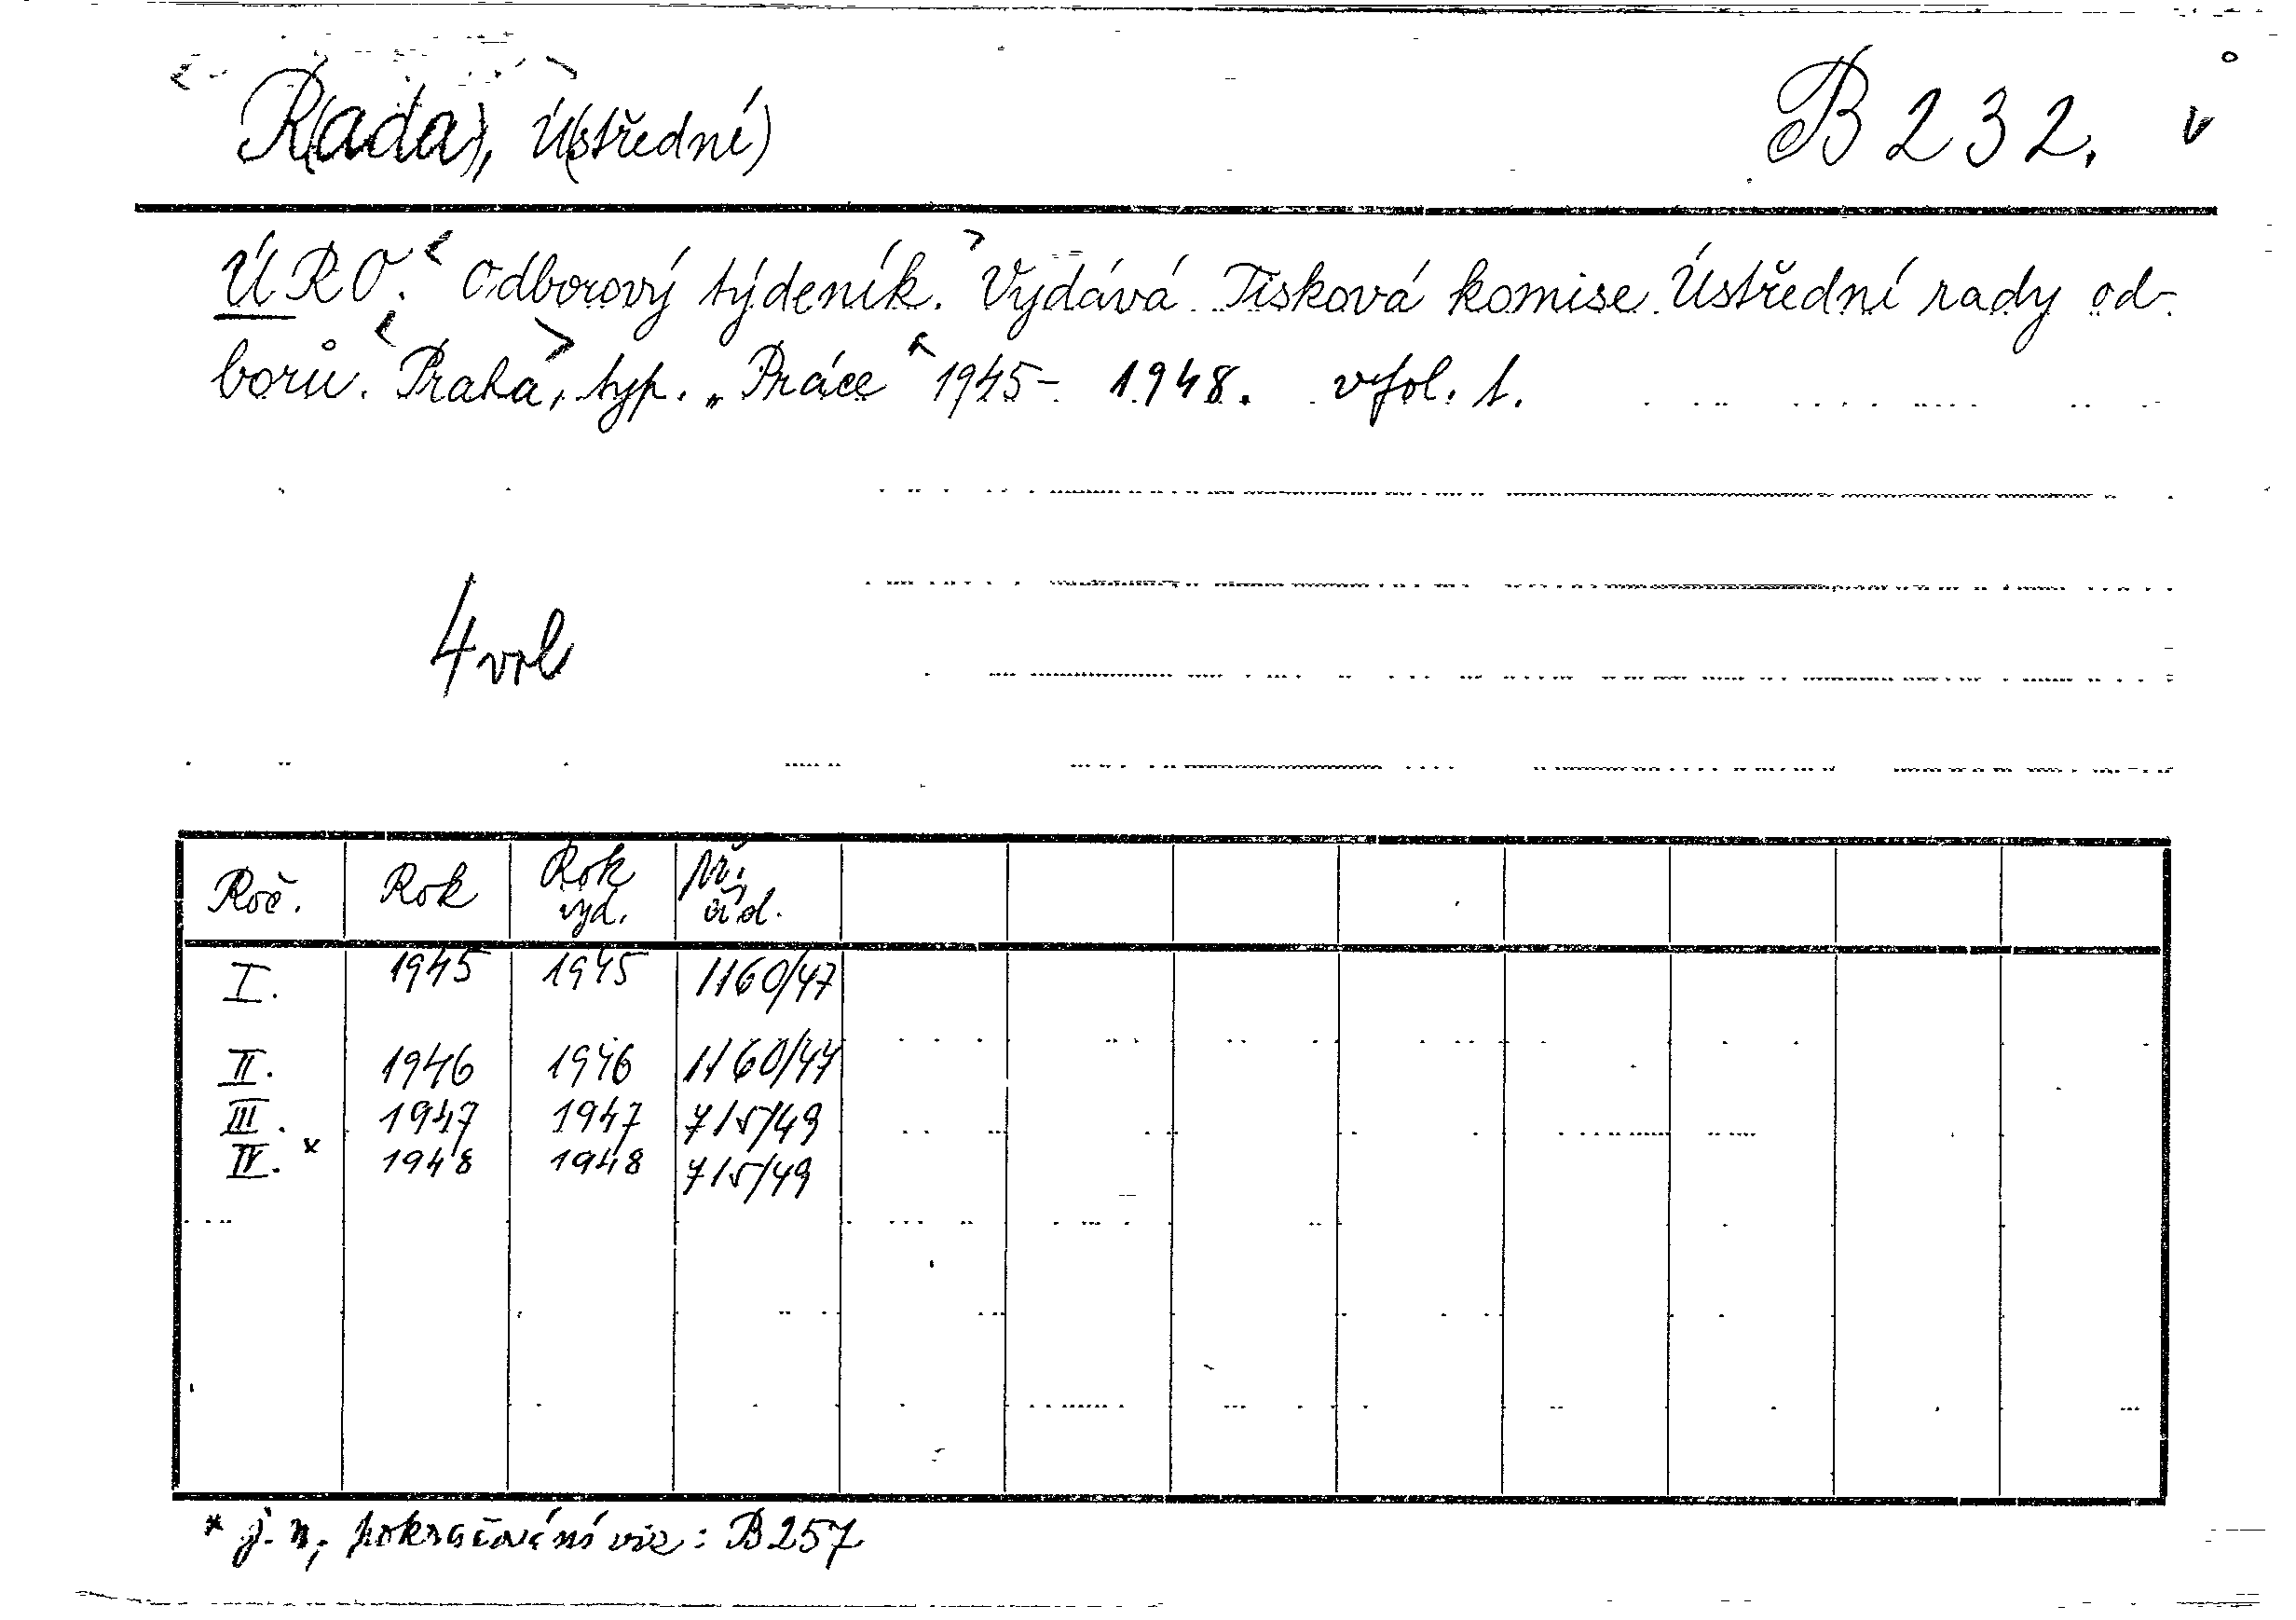 R(ada), Ú(střední) B 232. v
ÚRO. < Odborový týdeník. > Vydává Tisková komise Ústřední rady od-
borů. < Praha >, typ. „Práce" 1945- 1948. vfol. t.
4 vol
Roč. Rok Rok vyd. př.
I. 1945 1945 1160/47
II. 1946 1946 1160/47
III. 1947 1947 715/49
IV. * 1948 1948 715/49
* j. n, pokračování viz: B 257